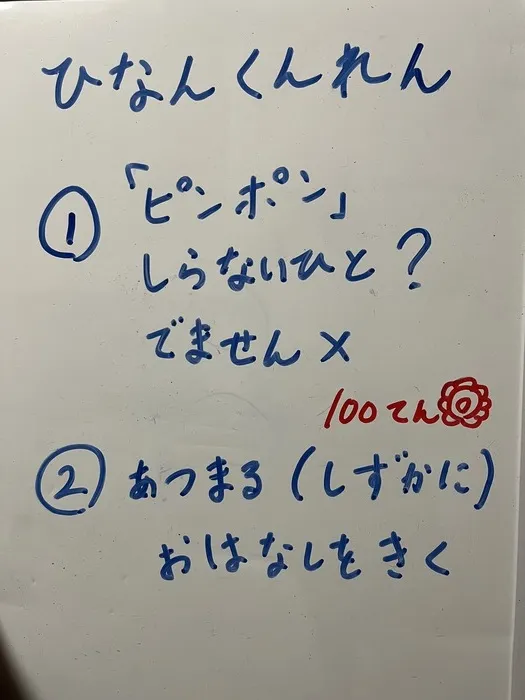 ひなんくんれん
① 「ピンポン」
しらないひと?
でません×
100てん
② あつまる(しずかに)
おはなしをきく